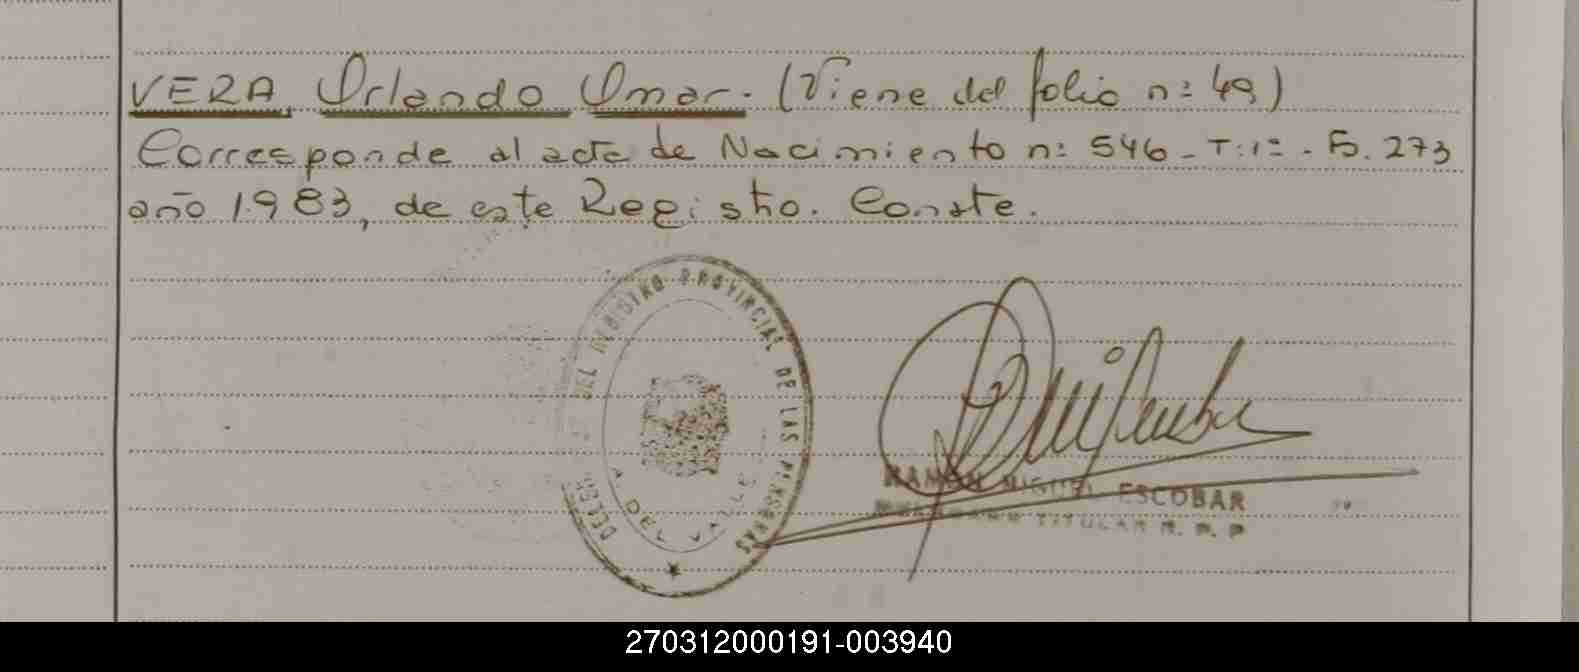 VERA, Orlando Omar. (Viene del folio n: 49)
Corresponde al acta de Nacimiento n: 546 - T: 1= - Fo. 273
año 1983, de este Registro. Conste.
DEL REGISTRO PROVINCIAL DE LAS PERSONAS
A DEL VALLE
RAMON MIGUEL ESCOBAR
TITULAR R. P. P
270312000191-003940